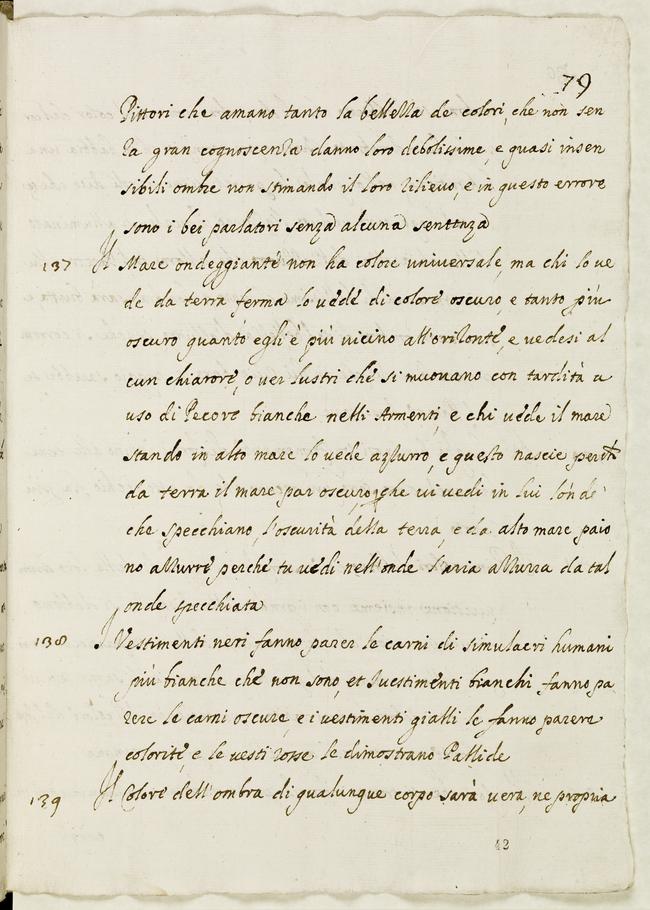 79
Pittori che amano tanto la bellezza de colori, che non sen
za gran cognoscenza danno loro debolissime, e quasi insen
sibili ombre non stimando il loro rilievo, e in questo errore
sono i bei parlatori senza alcuna sentenza
137 Il Mare ondeggiante non ha colore universale, ma chi lo ve
de da terra ferma lo vede di colore oscuro, e tanto più
oscuro quanto egli è più vicino all'orizonte, e vedesi al
cun chiarore, o ver lustri che si muovano con tardità a
uso di Pecore bianche nelli Armenti, e chi vede il mare
stando in alto mare lo vede azzurro, e questo nascie perche
da terra il mare par oscuro, che vi vedi in lui londe
che specchiano, l'oscurità della terra, e da alto mare paio
no azzurre perche tu vedi nell'onde l'aria azzurra da tal
onde specchiata
138 I Vestimenti neri fanno parer le carni di simulacri humani
più bianche che non sono, et I vestimenti bianchi fanno pa
rere le carni oscure, e i vestimenti gialli le fanno parere
colorite, e le vesti rosse le dimostrano Pallide
139 Il Colore dell'ombra di qualunque corpo sarà vera, ne propria
42